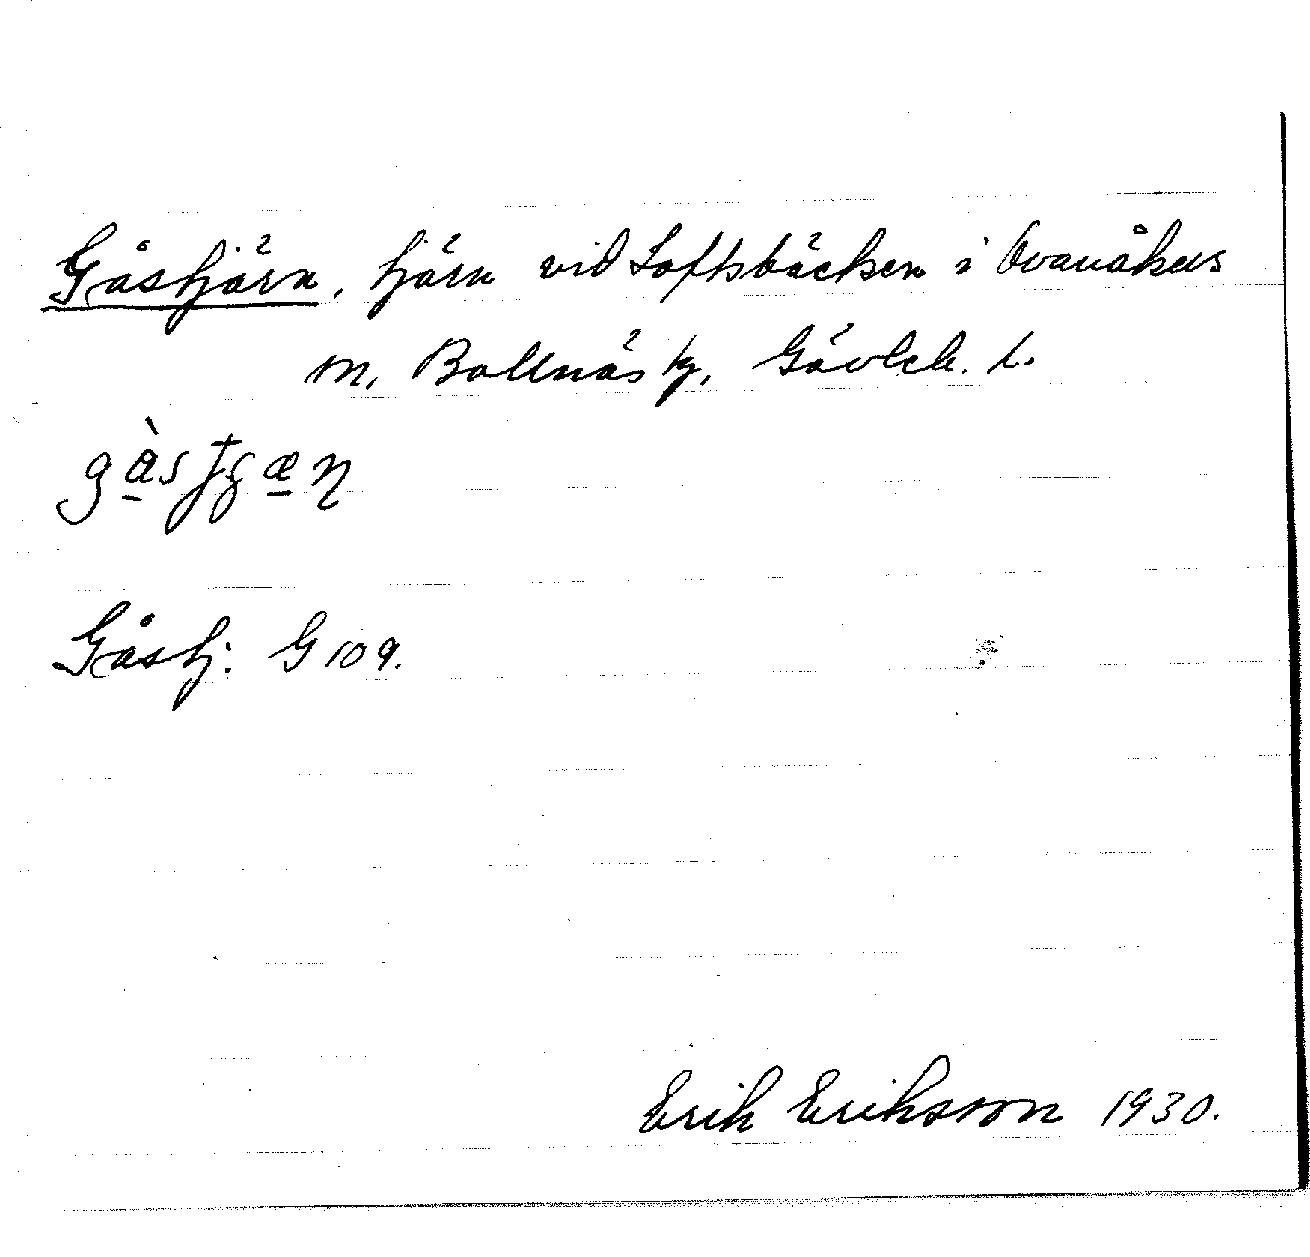 Gåstjärn, tjärn vid Loftsbäcken i Ovanåkers
m, Bollnäs tg, Gävleb. l.
Gåstj: G 109.
Erik Eriksson 1930.